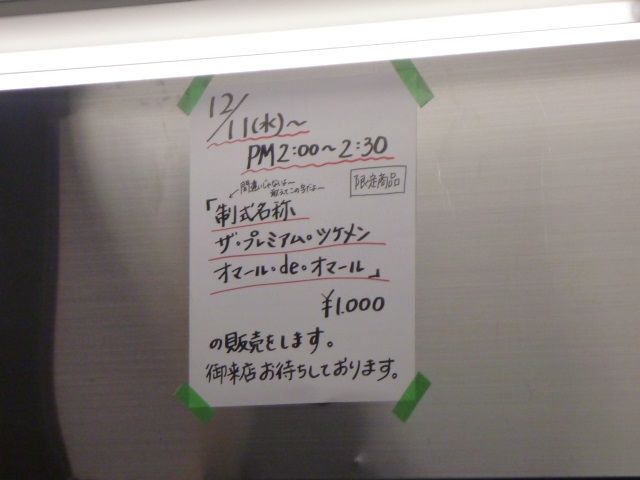 12/11(水)～
PM2:00～2:30
限定商品
間違いじゃないよ～
敢えてこの字だよ～
「制式名称
ザ・プレミアム・ツケメン
オマール・de・オマール」
¥1.000
の販売をします。
御来店お待ちしております。